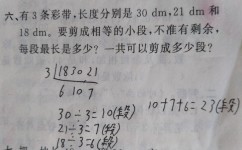 六、有3条彩带,长度分别是 30 dm,21 dm 和
18 dm。要剪成相等的小段,不准有剩余,
每段最长是多少?一共可以剪成多少段?
3 18 30 21
6 10 7
30÷3=10(段)
10+7+6=23(段)
21÷3=7(段)
18÷3=6(段)